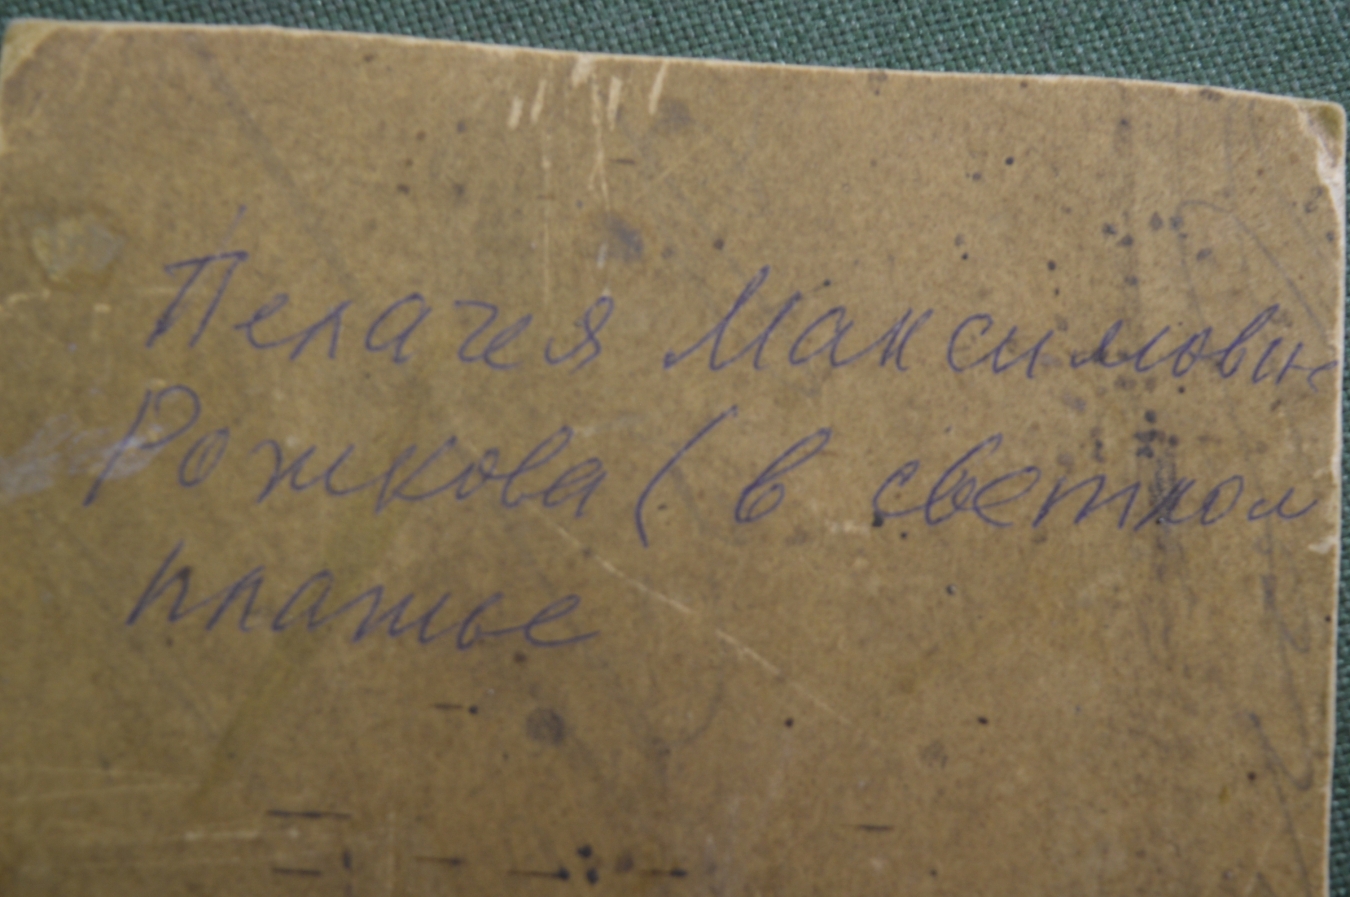 Пелагея Максимовн
Рожкова (в светлом
платье